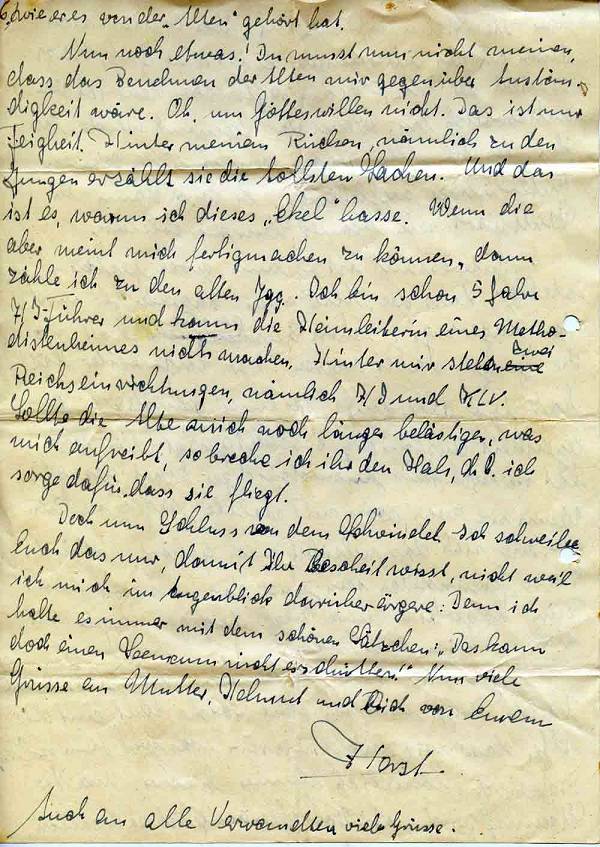 6) wie er es von der „Alten" gehört hat.
Nun noch etwas! Du musst nun nicht meinen,
dass das Benehmen der Alten mir gegenüber Anstän-
digkeit wäre. Oh, um Gotteswillen nicht. Das ist nur
Feigheit. Hinter meinem Rücken, nämlich zu den
Jungen erzählt sie die tollsten Sachen. Und das
ist es, warum ich dieses „Ekel" hasse. Wenn die
aber meint mich fertigmachen zu können, dann
zähle ich zu den alten Jgg. Ich bin schon 5 Jahre
HJ-Führer und kann die Heimleiterin eines Metho-
distenheimes nicht machen. Hinter mir stehen zwei
Reichseinrichtungen, nämlich HJ und KLV.
Sollte die Alte mich noch länger belästigen, was
mich aufreibt, so breche ich ihr den Hals, d.h. ich
sorge dafür, dass sie fliegt.
Doch nun Schluss von dem Schwindel. Ich schreibe
Euch das nur, damit Ihr Bescheit wisst, nicht weil
ich mich im Augenblick darüber ärgere: Denn ich
halte es immer mit dem schönen Sätzchen: „Das kann
doch einen Seemann nicht erschüttern!" Nun viele
Grüsse an Mutter, Helmut und Dich von Eurem
Horst.
Auch an alle Verwandten viele Grüsse.